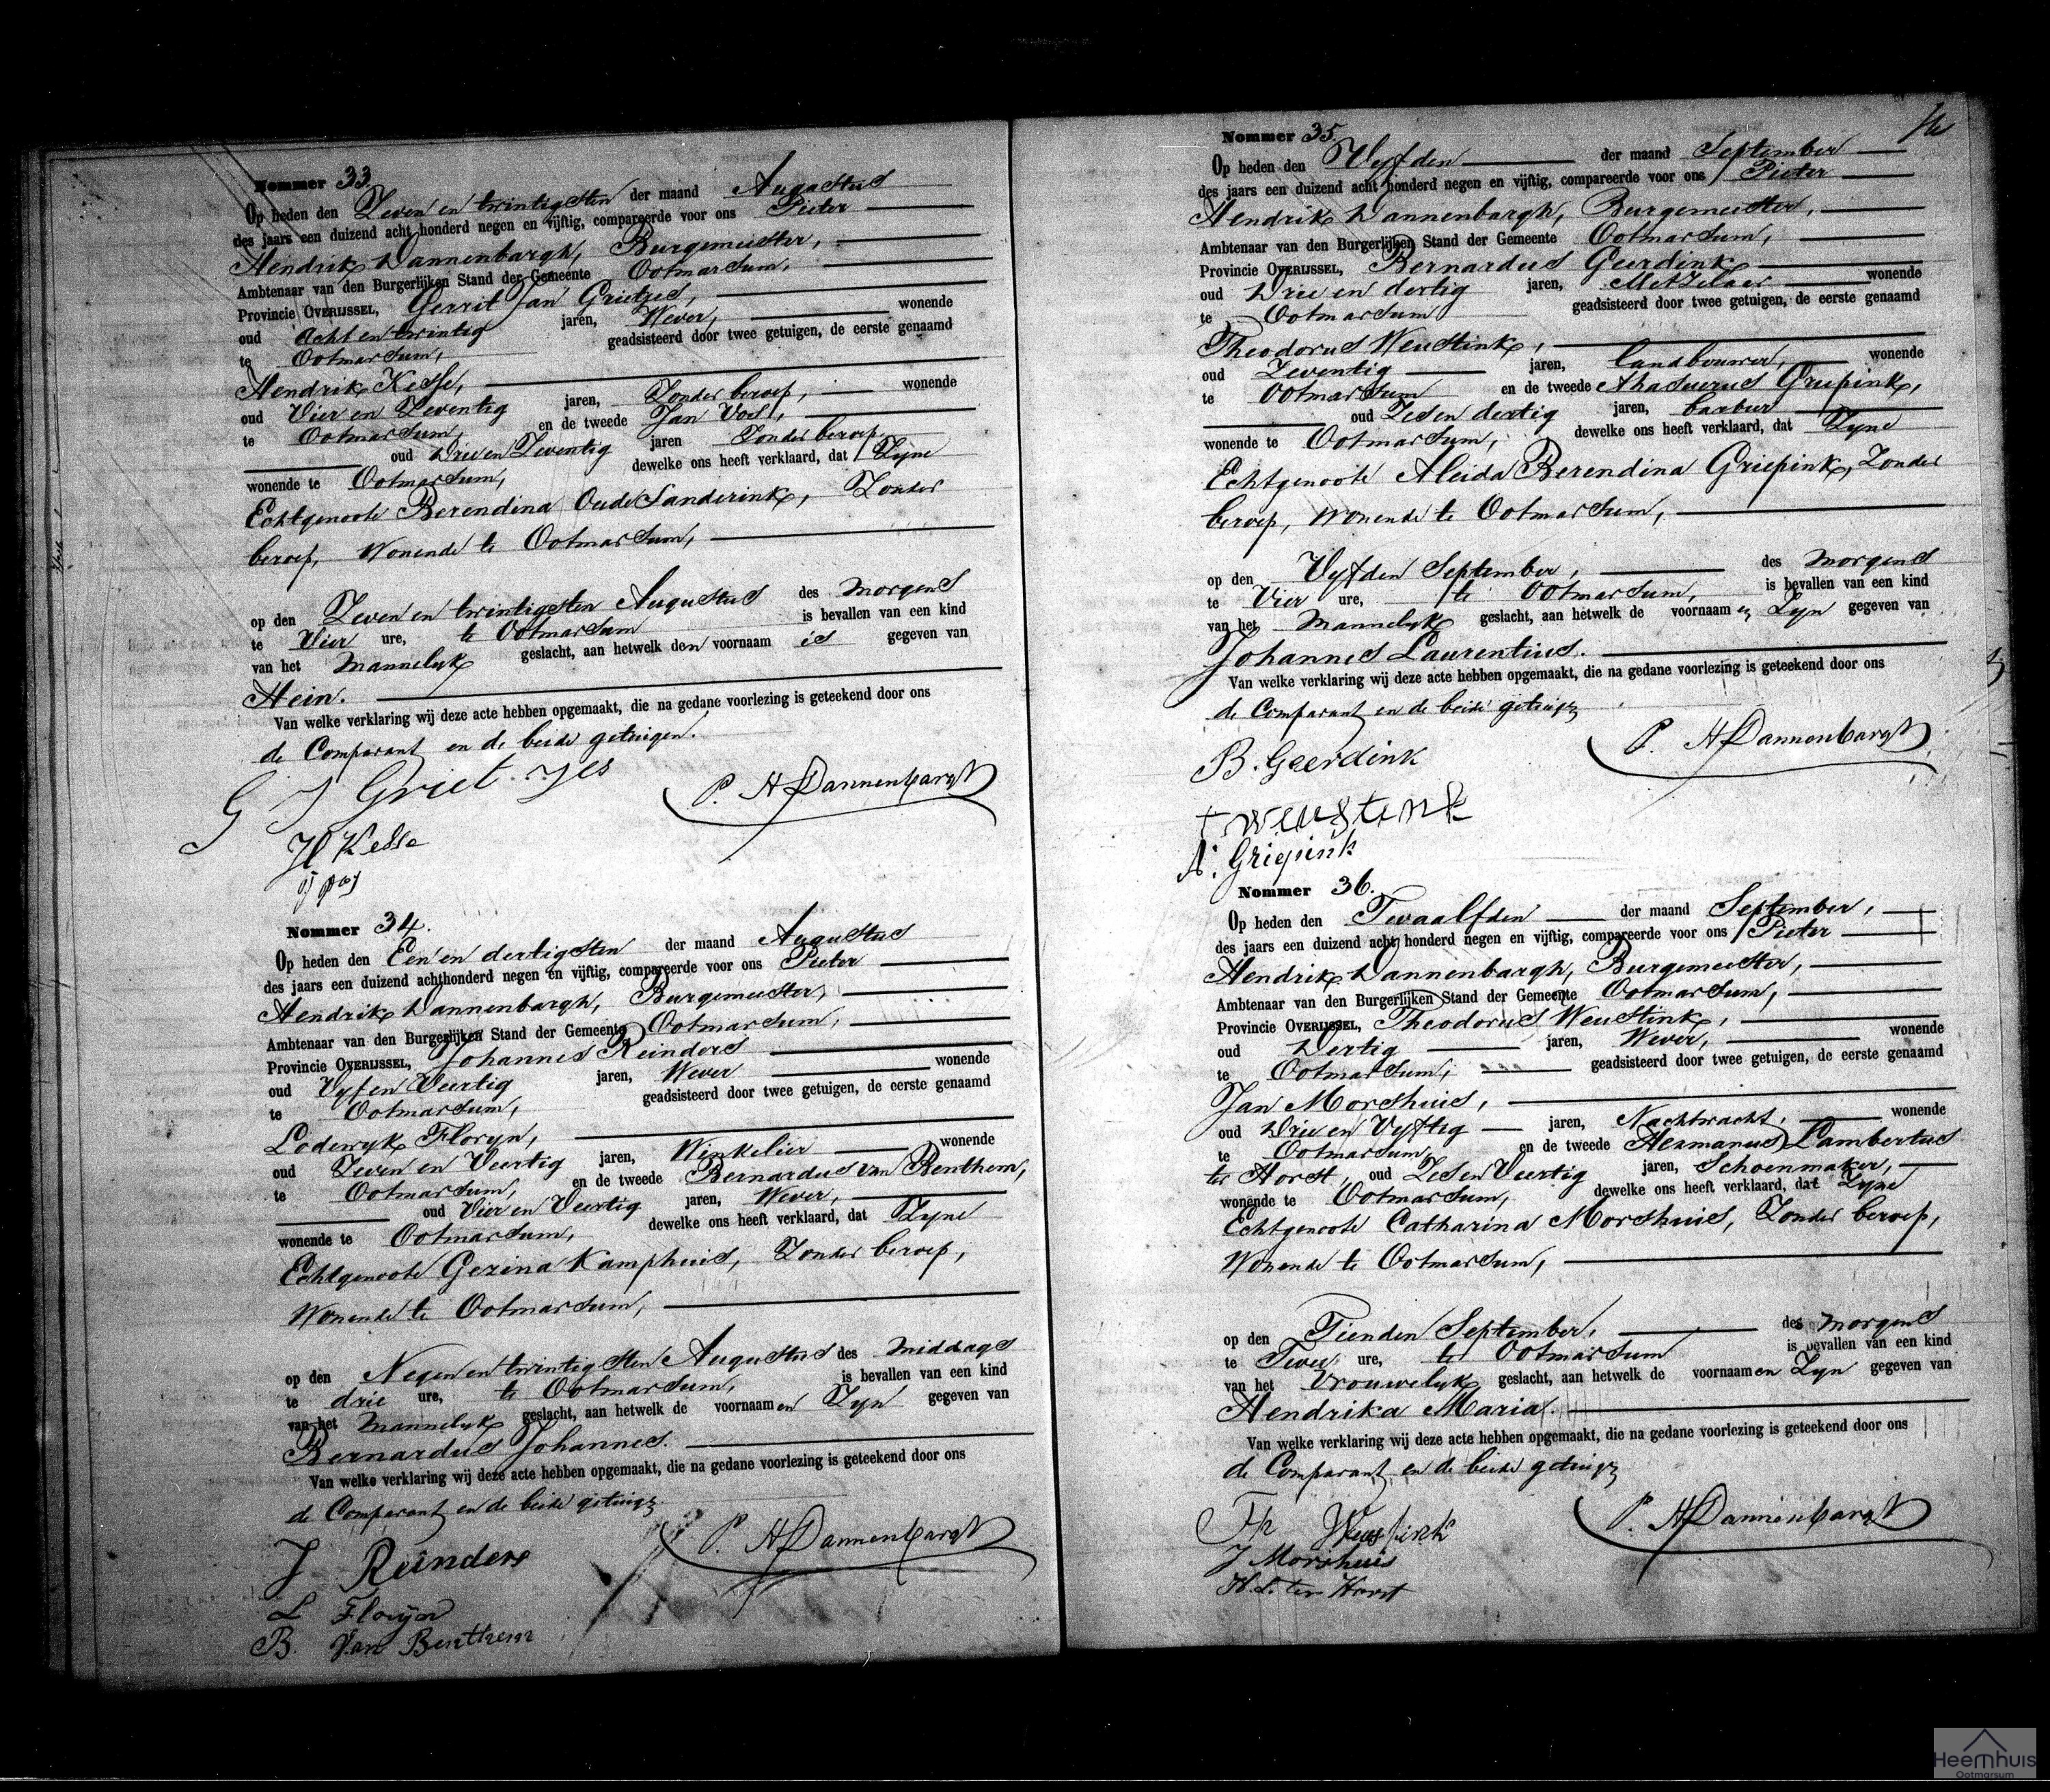 Nommer 33.
Op heden den Zeven en twintigsten der maand Augustus
des jaars een duizend acht honderd negen en vijftig, compareerde voor ons Pieter
Hendrik Dannenbargh, Burgemeester,
Ambtenaar van den Burgerlijken Stand der Gemeente Ootmarsum,
Provincie OVERIJSSEL, Gerrit Jan Grietjes,
oud Acht en twintig jaren, Wever, wonende
te Ootmarsum, geadsisteerd door twee getuigen, de eerste genaamd
Hendrik Kesse,
oud Vier en Zeventig jaren, Zonder beroep, wonende
te Ootmarsum, en de tweede Jan Vos,
oud Drie en Zeventig jaren Zonder beroep,
wonende te Ootmarsum, dewelke ons heeft verklaard, dat Zyne
Echtgenoote Berendina Oude Sanderink, Zonder
beroep, Wonende te Ootmarsum,
op den Zeven en twintigsten Augustus des morgens
te Vier ure, te Ootmarsum is bevallen van een kind
van het Mannelyk geslacht, aan hetwelk den voornaam is gegeven van
Hein.
Van welke verklaring wij deze acte hebben opgemaakt, die na gedane voorlezing is geteekend door ons
de Comparant en de beide getuigen.
G J Griet-jes P. H Dannenbargh
H Kesse
Nommer 34.
Op heden den Een en dertigsten der maand Augustus
des jaars een duizend achthonderd negen en vijftig, compareerde voor ons Pieter
Hendrik Dannenbargh, Burgemeester,
Ambtenaar van den Burgerlijken Stand der Gemeente Ootmarsum,
Provincie OVERIJSSEL, Johannes Reinders
oud Vyf en Veertig jaren, Wever wonende
te Ootmarsum, geadsisteerd door twee getuigen, de eerste genaamd
Lodewyk Floryn,
oud Zeven en Veertig jaren, Winkelier wonende
te Ootmarsum, en de tweede Bernardus van Benthem,
oud Vier en Veertig jaren, Wever,
wonende te Ootmarsum, dewelke ons heeft verklaard, dat Zyne
Echtgenoote Gezina Kamphuis, Zonder beroep,
Wonende te Ootmarsum,
op den Negen en twintigsten Augustus des middags
te drie ure, te Ootmarsum, is bevallen van een kind
van het Mannelyk geslacht, aan hetwelk de voornaamen Zyn gegeven van
Bernardus Johannes.
Van welke verklaring wij deze acte hebben opgemaakt, die na gedane voorlezing is geteekend door ons
de Comparant en de beide getuigen
J Reinders P. H Dannenbargh
L Floryn
B. Van Benthem
Nommer 35.
Op heden den Vyfden der maand September
des jaars een duizend acht honderd negen en vijftig, compareerde voor ons Pieter
Hendrik Dannenbargh, Burgemeester,
Ambtenaar van den Burgerlijken Stand der Gemeente Ootmarsum,
Provincie OVERIJSSEL, Bernardus Geerdink
oud Drie en dertig jaren, Metzelaar wonende
te Ootmarsum geadsisteerd door twee getuigen, de eerste genaamd
Theodorus Weustink,
oud Zeventig jaren, landbouwer, wonende
te Ootmarsum en de tweede Ahasuerus Griepink,
oud Zes en dertig jaren, barbier
wonende te Ootmarsum, dewelke ons heeft verklaard, dat Zyne
Echtgenoote Aleida Berendina Griepink, Zonder
beroep, Wonende te Ootmarsum,
op den Vyfden September, des morgens
te Vier ure, te Ootmarsum, is bevallen van een kind
van het Mannelyk geslacht, aan hetwelk de voornaamen Zyn gegeven van
Johannes Laurentius.
Van welke verklaring wij deze acte hebben opgemaakt, die na gedane voorlezing is geteekend door ons
de Comparant en de beide getuigen
P. H Dannenbargh
B. Geerdink
T weustenk
A. Griepink
Nommer 36.
Op heden den Twaalfden der maand September,
des jaars een duizend acht honderd negen en vijftig, compareerde voor ons Pieter
Hendrik Dannenbargh, Burgemeester,
Ambtenaar van den Burgerlijken Stand der Gemeente Ootmarsum,
Provincie OVERIJSSEL, Theodorus Weustink,
oud Dertig jaren, Wever, wonende
te Ootmarsum, geadsisteerd door twee getuigen, de eerste genaamd
Jan Morshuis,
oud Drie en Vyftig jaren, Nachtwacht, wonende
te Ootmarsum, en de tweede Hermanus Lambertus
ter Horst, oud Zes en Veertig jaren, Schoenmaker,
wonende te Ootmarsum, dewelke ons heeft verklaard, dat Zyne
Echtgenoote Catharina Morshuis, Zonder beroep,
Wonende te Ootmarsum,
op den Tienden September, des morgens
te Twee ure, te Ootmarsum is bevallen van een kind
van het Vrouwelyk geslacht, aan hetwelk de voornaamen Zyn gegeven van
Hendrika Maria.
Van welke verklaring wij deze acte hebben opgemaakt, die na gedane voorlezing is geteekend door ons
de Comparant en de beide getuigen
P. H Dannenbargh
J Morshuis
H. L. ter Horst
Heemhuis
Ootmarsum